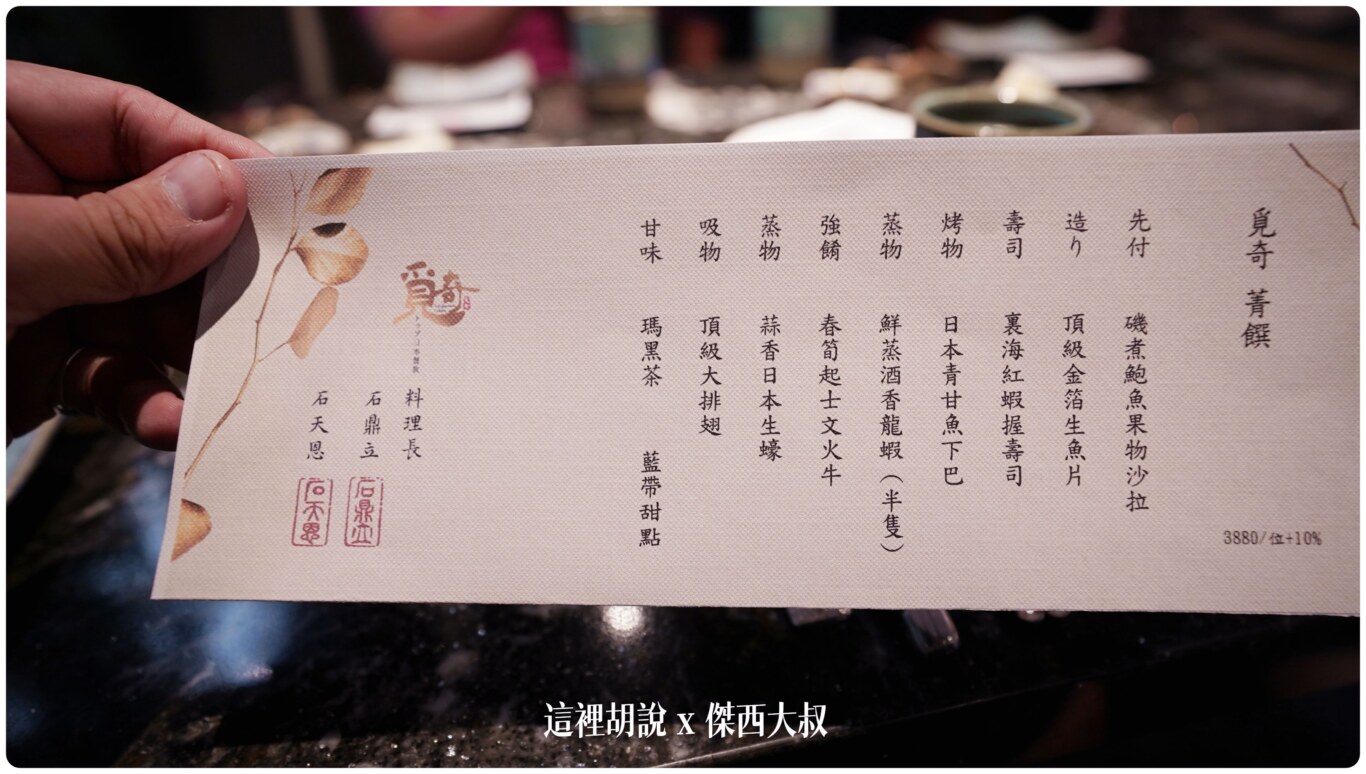 覓奇 菁饌
3880/位+10%
先付 磯煮鮑魚果物沙拉
造り 頂級金箔生魚片
壽司 裏海紅蝦握壽司
烤物 日本青甘魚下巴
蒸物 鮮蒸酒香龍蝦（半隻）
強餚 春筍起士文火牛
蒸物 蒜香日本生蠔
吸物 頂級大排翅
甘味 瑪黑茶 藍帶甜點
覓奇
料理長
石鼎立
石天恩
石鼎立
石天恩
這裡胡說 x 傑西大叔